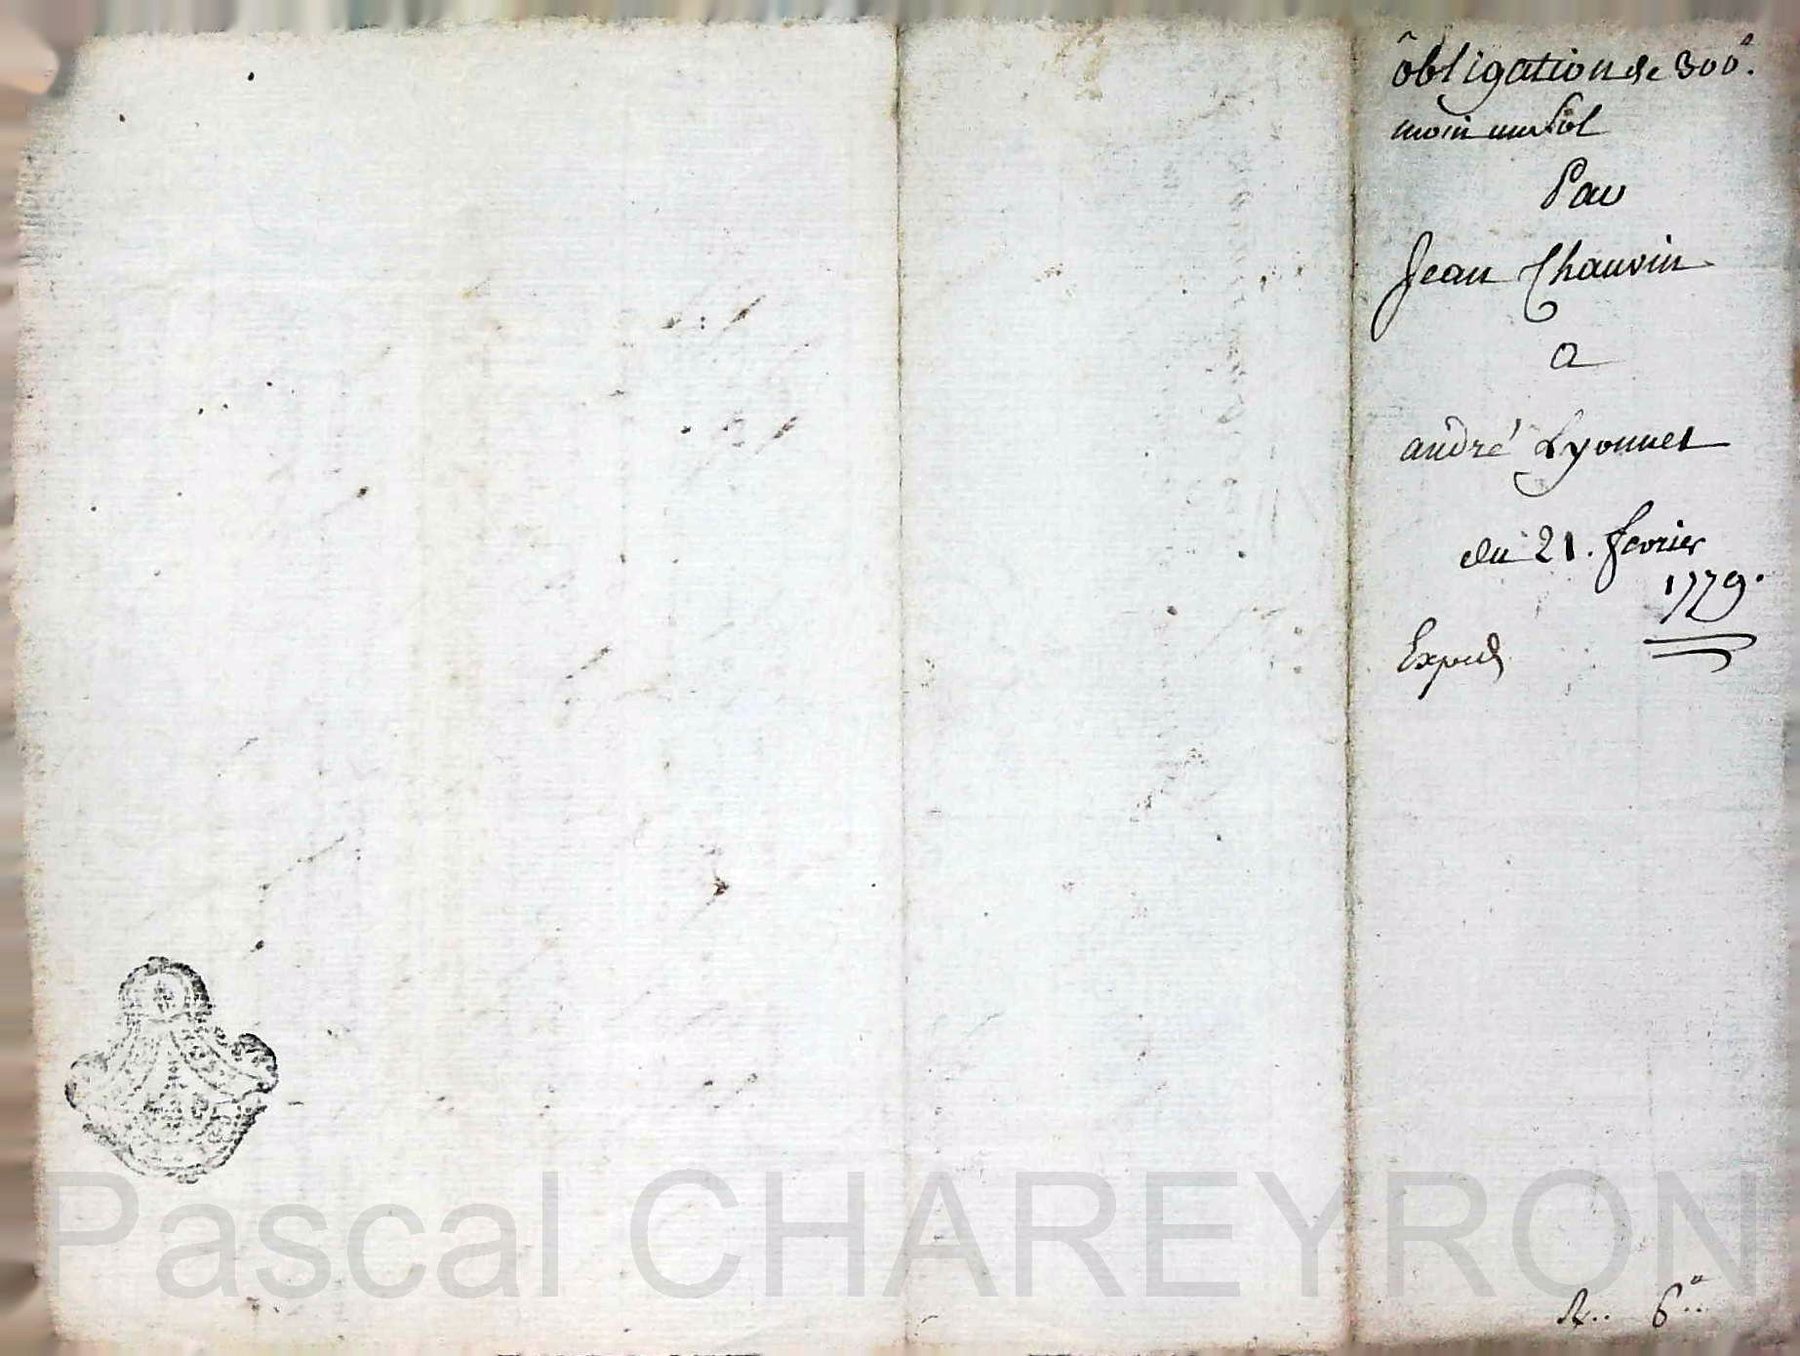 obligation de 300#.
moin un sol
Par
Jean Chauvin
a
andré Lyonnet
du 21. fevrier
1779.
Exped
R.. 6#
Pascal CHAREYRON